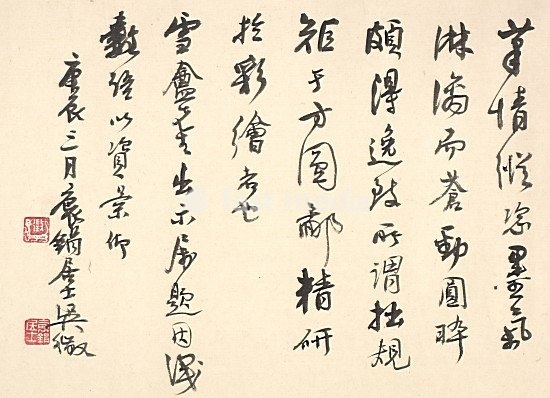 筆情縱恣墨氣
淋漓而蒼勁圓晬
頗得逸致所謂拙規
矩于方圓鄙精研
於彩繪者也
雪盦先生出示屬題因識
數語以資景仰
庚辰三月裒鐫居士吳徵